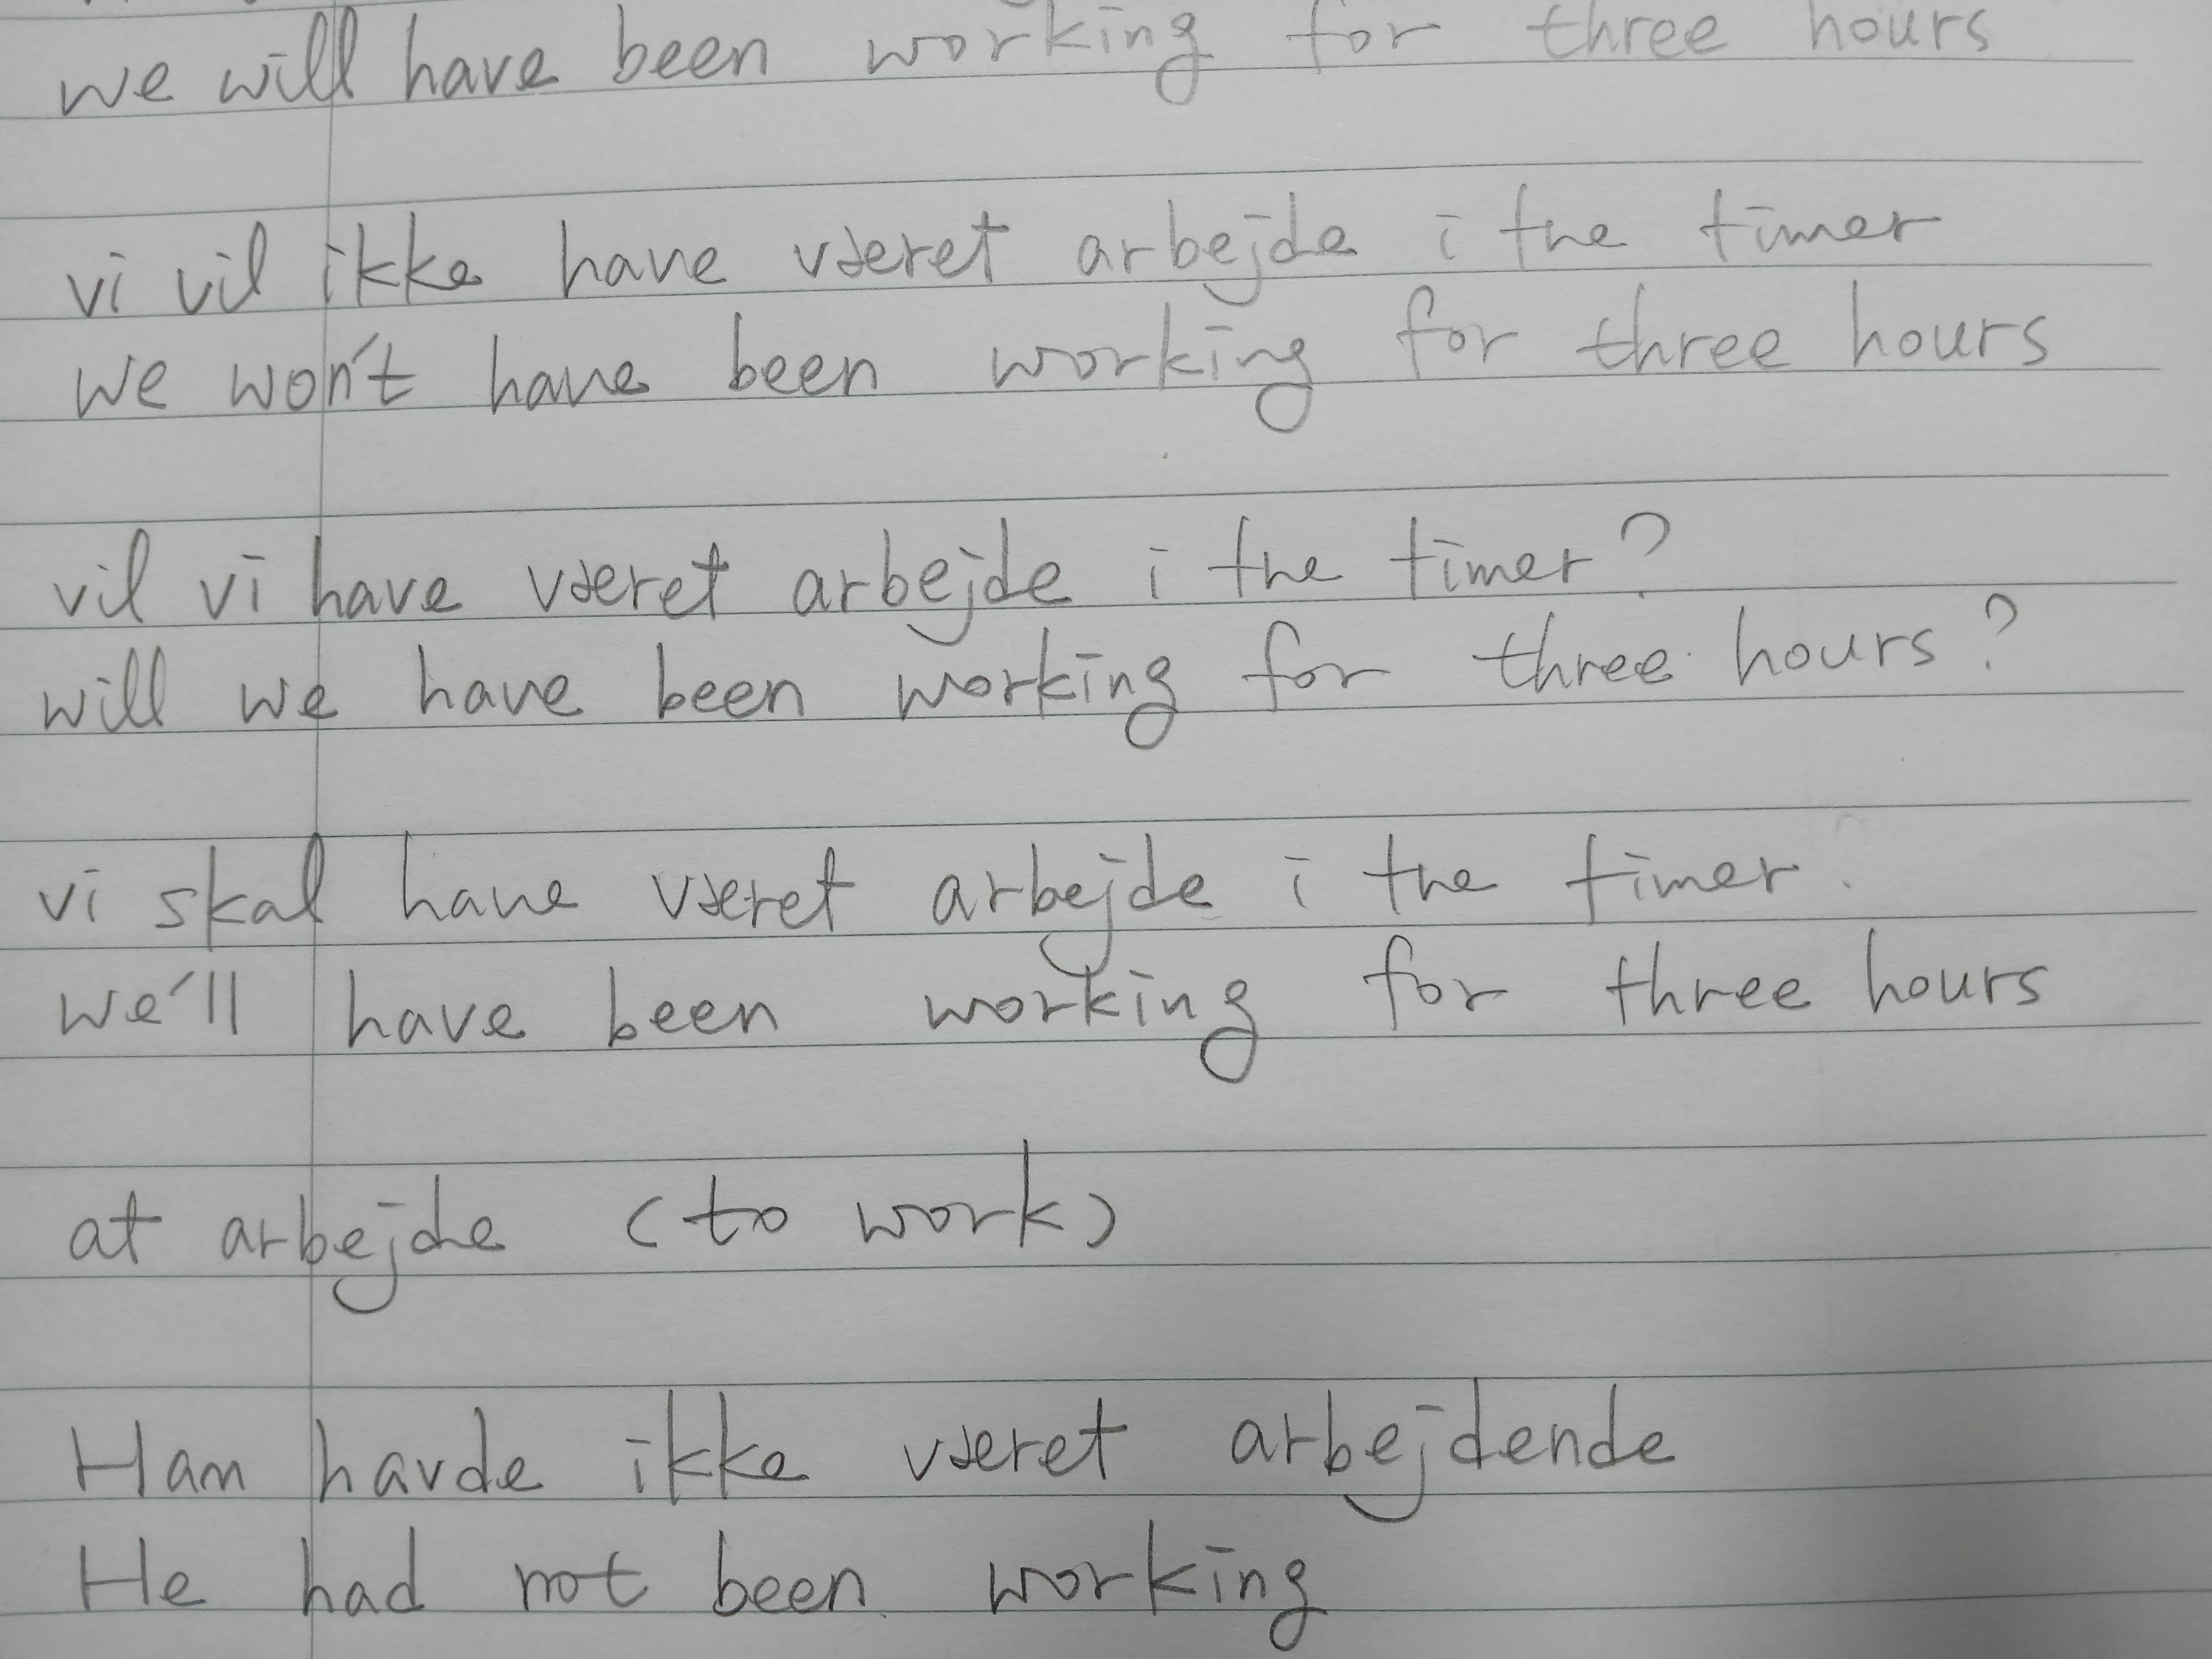 we will have been working for three hours
vi vil ikke have været arbejde i tre timer
we won't have been working for three hours
vil vi have været arbejde i tre timer?
will we have been working for three hours?
vi skal have været arbejde i tre timer.
we'll have been working for three hours
at arbejde (to work)
Han havde ikke været arbejdende
He had not been working